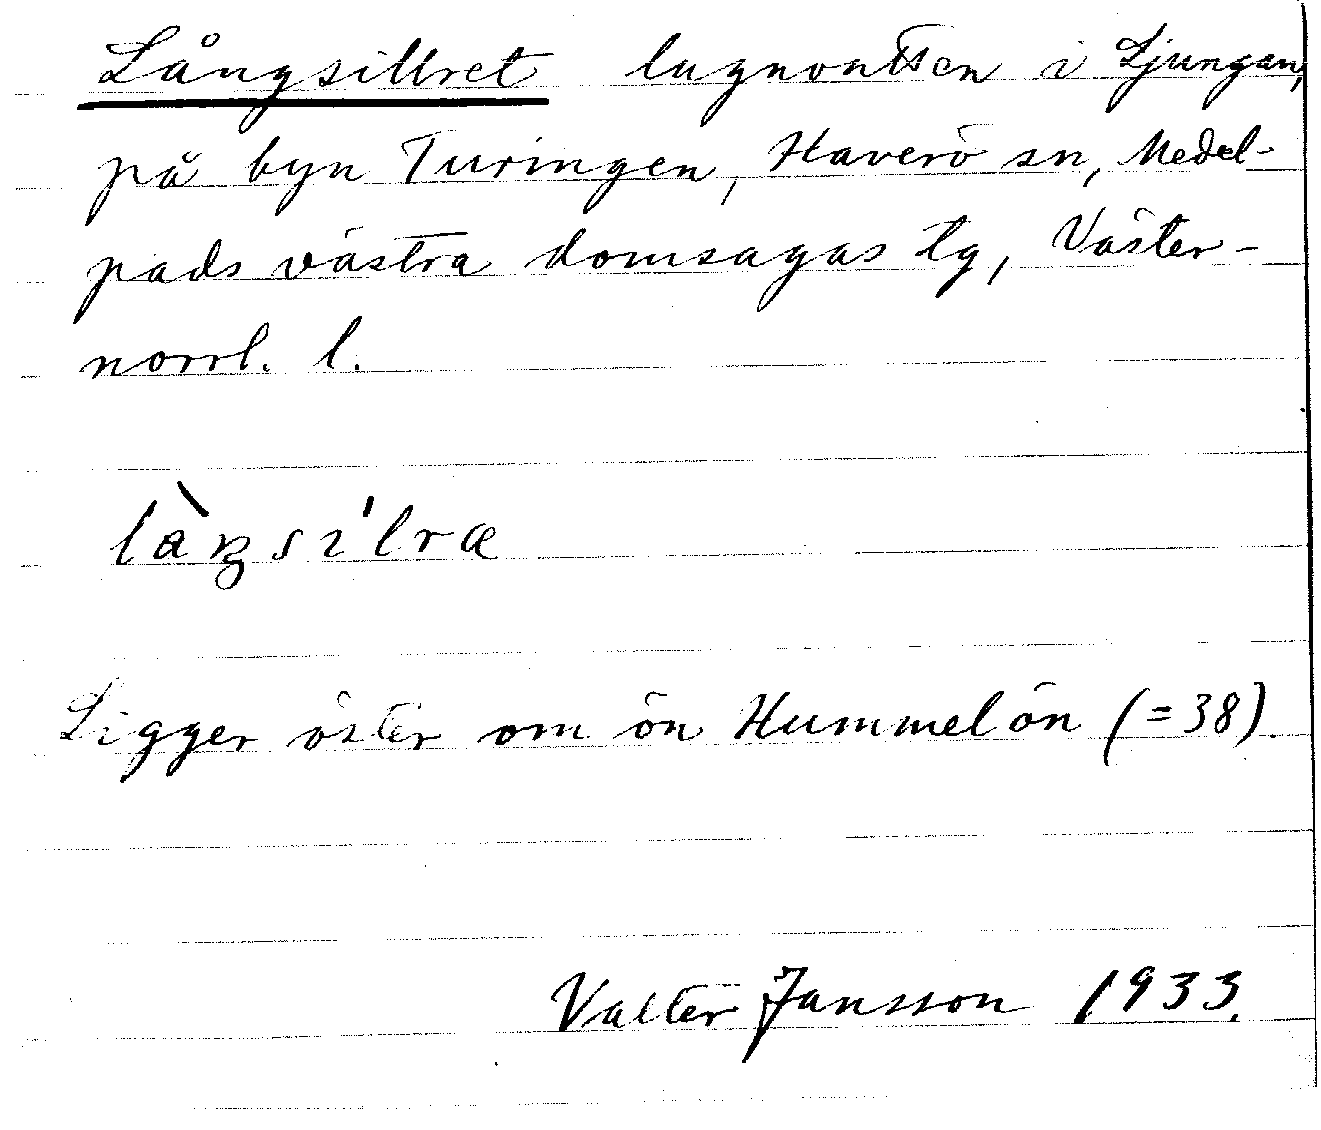 Långsillret lugnvatten i Ljungan,
på byn Turingen, Haverö sn, Medel-
pads västra domsagas tg, Väster-
norrl. l.
Ligger öster om ön Hummelön (=38).
Valter Jansson 1933.